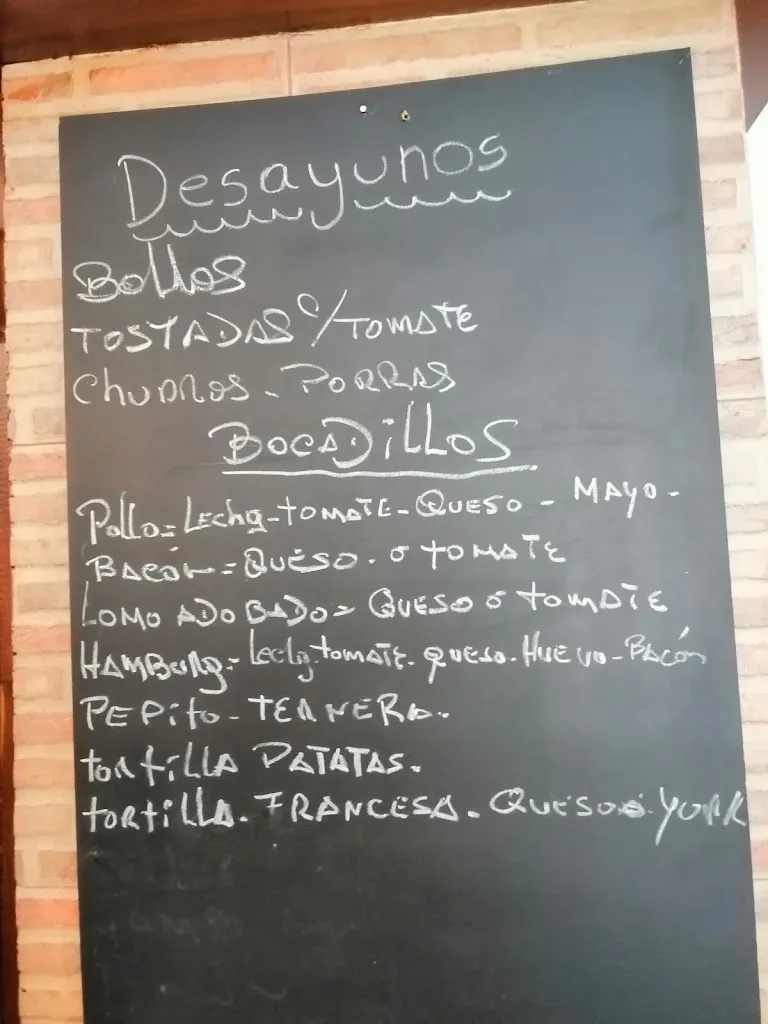 Desayunos
Bollos
TOSTADAS c/TOMATE
Churros - PORRAS
BOCADILLOS
Pollo = Lechg - tomate - Queso - MAYO -
BACÓN = QUESO . ó TOMATE
LOMO ADOBADO = QUESO ó tomate
HAMBURg = Lechg . tomate . queso . HUEVO - BACón
PEPito - TERNERA .
tortilla PATATAS .
tortilla . FRANCESA . QUESO ó YORK